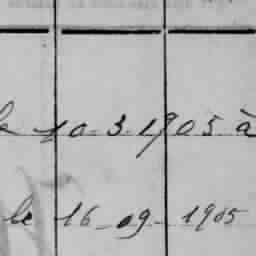 le 10.3.1905 à
le 16-09-1905